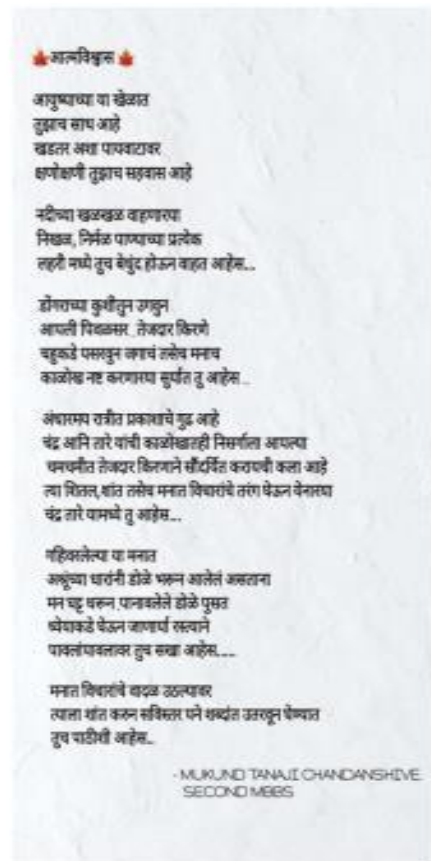 🍁आत्मविश्वास 🍁
आयुष्याच्या या खेळात
तुझाच साथ आहे
खडतर अशा पायवाटावर
क्षणोक्षणी तुझाच सहवास आहे
नदीच्या खळखळ वाहणारया
निखळ, निर्मळ पाण्याच्या प्रत्येक
लहरी मध्ये तुच बेधुंद होऊन वाहत आहेस...
डोंगराच्या कुशीतुन उगवुन
आपली पिवळसर , तेजदार किरणे
चहुकडे पसरवुन जगाचं तसेच मनाच
काळोख नष्ट करणारया सुर्यात तु आहेस ..
अंधारमय रात्रीत प्रकाशाचे गुढ आहे
चंद्र आनि तारे यांची काळोखातही निसर्गाला आपल्या
चमचमीत तेजदार किरणाने सौंदर्यित करायची कला आहे
त्या शितल, शांत तसेच मनात विचारांचे तरंग घेऊन येनारया
चंद्र तारे यामध्ये तु आहेस...
गहिवरलेल्या या मनात
अश्रूंच्या धारांनी डोळे भरून आलेलं असताना
मन घट्ट धरून ,पानावलेले डोळे पुसत
ध्येयाकडे घेऊन जाणार्या रस्त्याने
पावलांपावलावर तुच सखा आहेस.....
मनात विचारांचे वादळ उठल्यावर
त्याला शांत करून सविस्तर पने शब्दांत उतरवून घेण्यात
तूच पाठीशी आहेस...
- MUKUND TANAJI CHANDANSHIVE.
SECOND MBBS